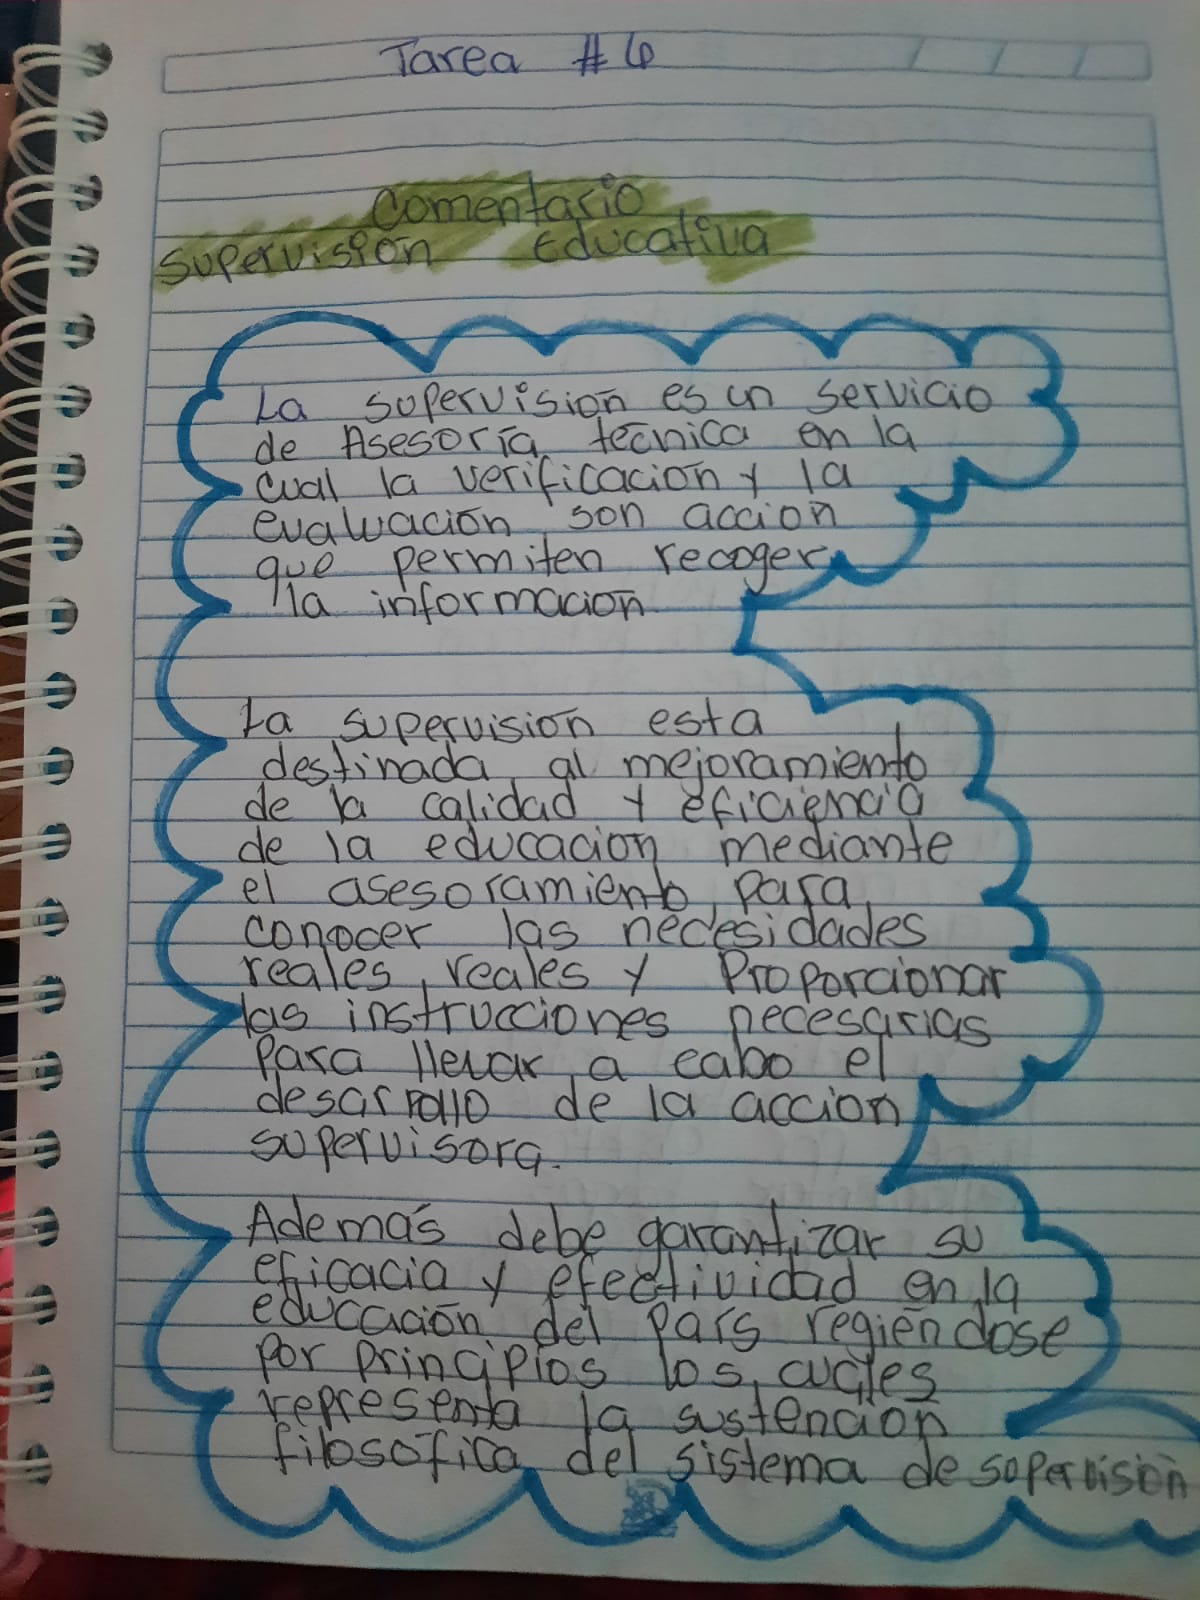 Tarea #6
Comentario
supervisión Educativa
La supervisión es un servicio
de Asesoría técnica en la
cual la verificación y la
evaluación son accion
que permiten recoger
la información.
La supervisión esta
destinada al mejoramiento
de la calidad y eficiencia
de la educación mediante
el asesoramiento para
conocer las necesidades
reales, reales y Proporcionar
las instrucciones necesarias
para llevar a cabo el
desarrollo de la accion
supervisora.
Además debe garantizar su
eficacia y efectividad en la
educación del País regiéndose
por principios los cuales
representa la sustención
filosófica del sistema de supervisión